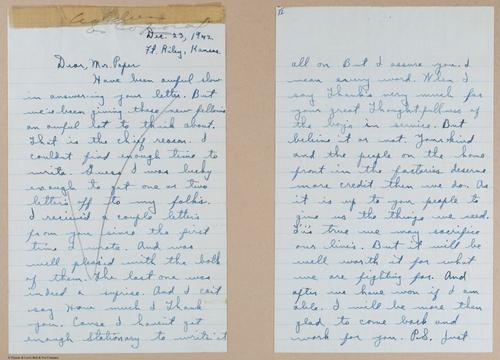 Dec. 23, 1942.
Ft. Riley, Kansas.
Dear, Mr. Peper
Have been awful slow
in answering your letter. But
we've been giving these new fellows
an awful lot to think about.
That is the chief reason. I
couldn't find enough time to
write. Guess I was lucky
enough to get one or two
letters off to my folks.
I recieved a couple letters
from you since the first
time I wrote. And was
well pleased with the both
of them. The last one was
indeed a suprise. And I can't
say How much I Thank
you. Cause I haven't got
enough stationary to write it
all on But I assure you. I
mean every word. When I
say Thanks very much for
your great Thoughtfullness of
the boys in service. But
believe it or not. Your kind
and the people on the home
front in the factories deserve
more credit then we do. As
it is up to your people to
give us the things we need.
It's true we may sacrifice
our lives. But it will be
well worth it for what
we are fighting for. And
after we have won if I am
able. I will be more then
glad to come back and
work for you. P.S. Just